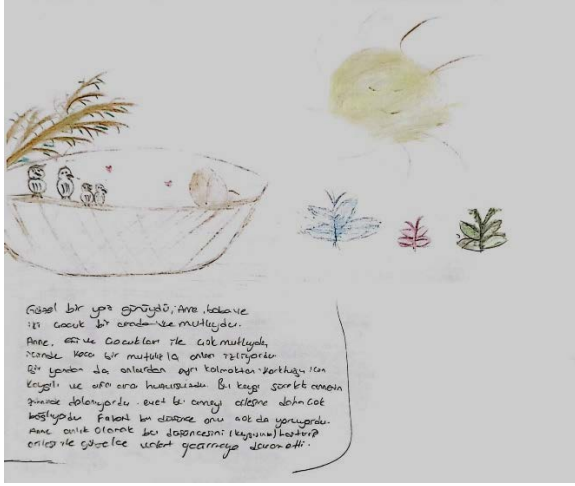 Güzel bir yaz günüydü, Anne, baba ve
iki çocuk bir arada ve mutluydu.
Anne, eşi ve Çocukları ile çok mutluydu,
içinde koca bir mutlulukla onları izliyordu
Bir yandan da onlardan ayrı kalmaktan korktuğu için
kaygılı ve ara ara huzursuzdu. Bu kaygı sürekli annenin
dolanıyordu. evet bu anneyi ailesine daha çok
bağlıyordu Fakat bu düşünce onu çok da yoruyordu.
Anne anlık olarak bu düşüncesini (kaygısını) bastırıp
ailesi ile güzelce vakit geçirmeye devam etti.